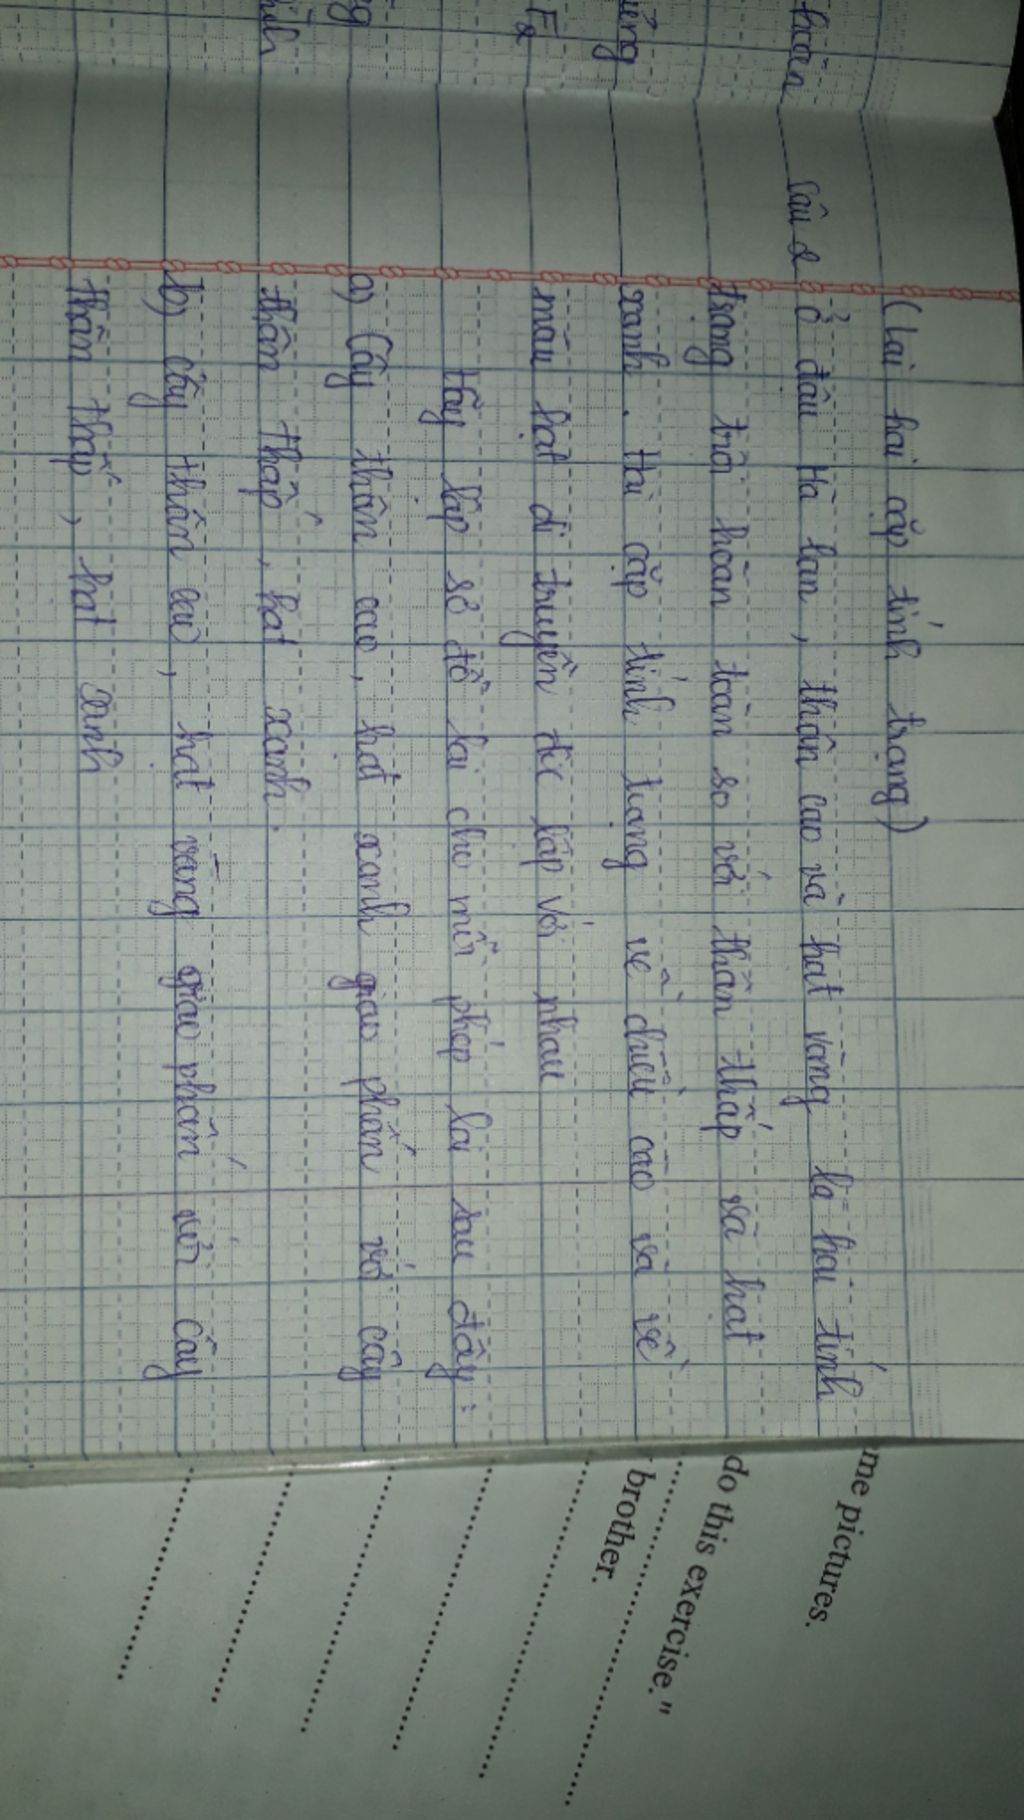 (Lai hai cặp tính trạng)
Câu 2 Ở đậu Hà Lan, thân cao và hạt vàng là hai tính
trạng trội hoàn toàn so với thân thấp và hạt
xanh. Hai cặp tính trạng về chiều cao và về
màu hạt di truyền độc lập với nhau
Hãy lập sơ đồ lai cho mỗi phép lai sau đây:
a) Cây thân cao, hạt xanh giao phấn với cây
thân thấp, hạt xanh.
b) cây thân cao, hạt vàng giao phấn với cây
thân thấp, hạt xanh
hoàn
F2
me pictures.
do this exercise."
brother.